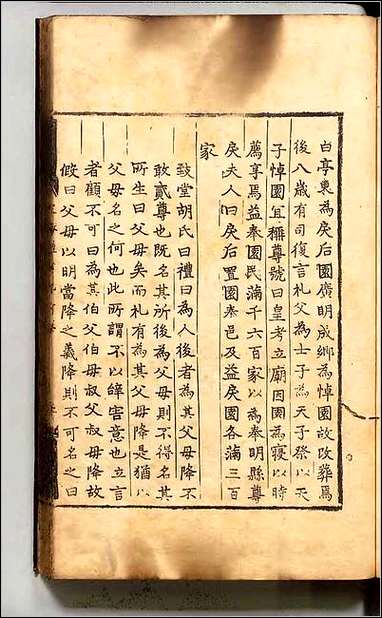 白亭東為戾后園廣明成鄉為悼園故改葬焉
後八歲有司復言礼父為士子為天子祭以天
子悼園宜稱尊號曰皇考立廟因園為寢以時
薦享焉益奉園民滿千六百家以為奉明縣尊
戾夫人曰戾后置園奉邑及益戾園各滿三百
家
致堂胡氏曰禮曰為人後者為其父母降不
敢貳尊也既名其所後為父母則不得名其
所生曰父母矣而札有為其父母降是猶以
父母名之何也此所謂不以辭害意也立言
者顧不可曰為其伯父伯母叔父叔母降故
假曰父母以明當降之義降則不可名之曰